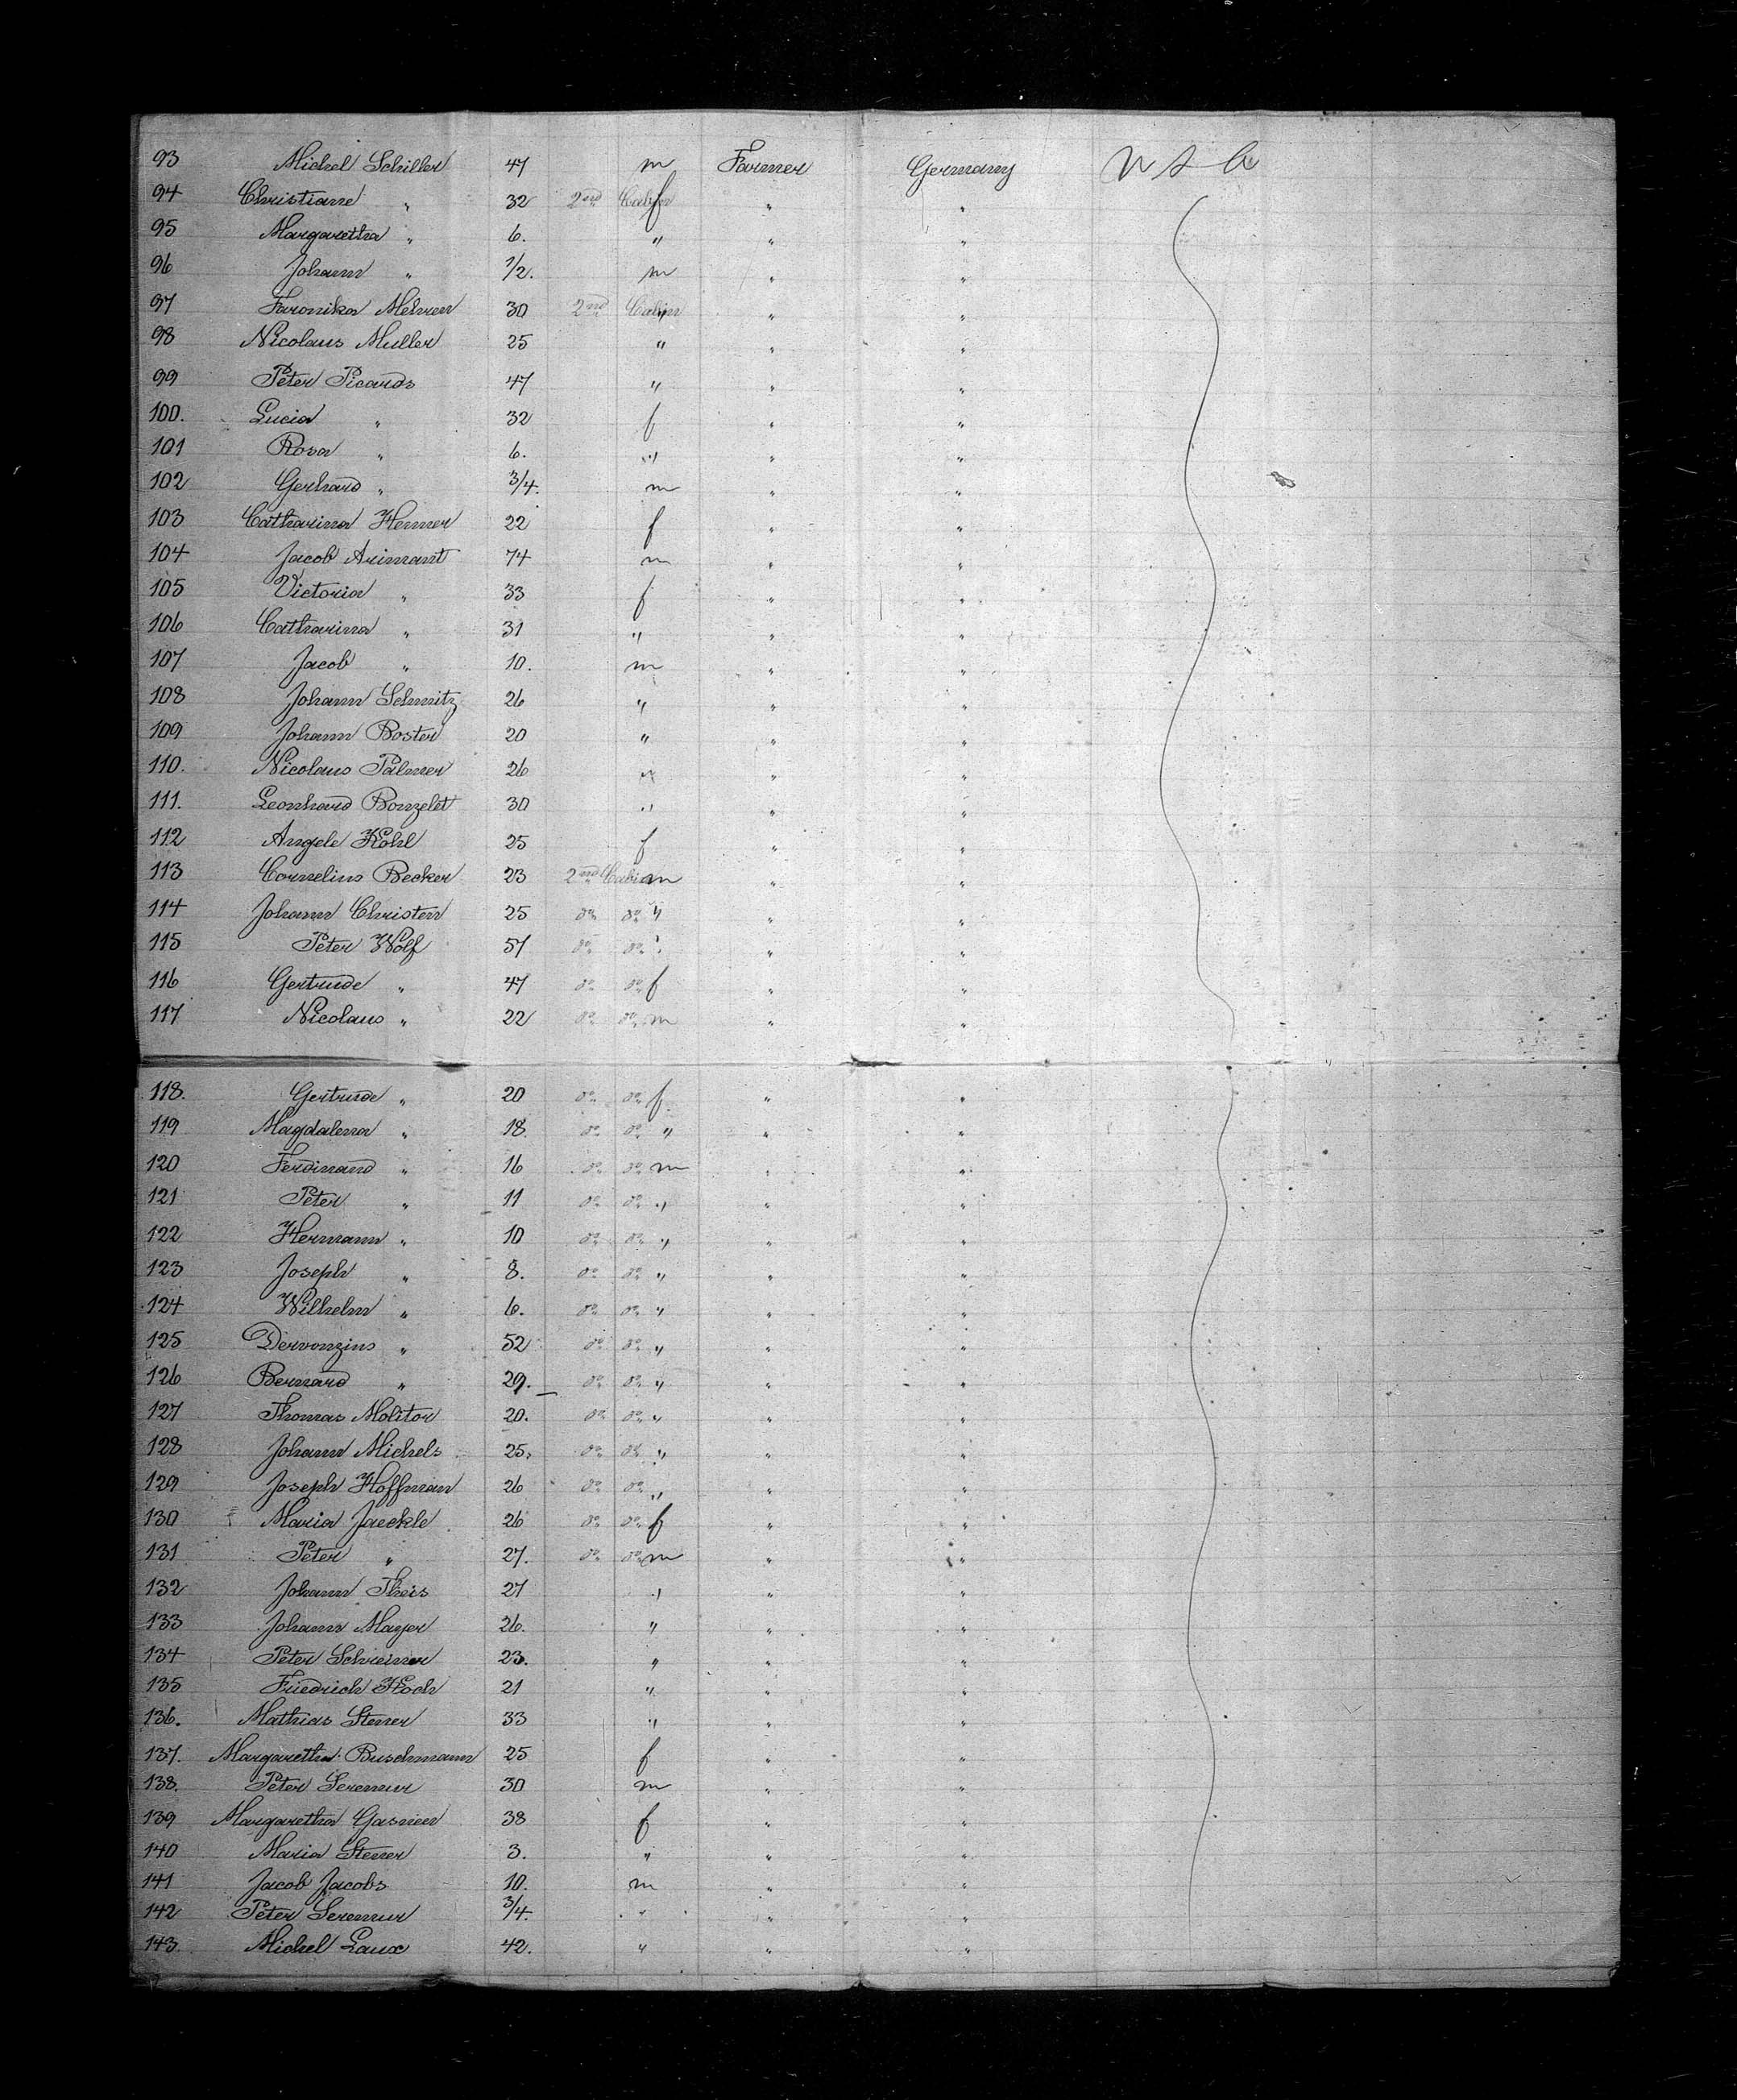 93 Michel Schiller 47 m Farmer Germany U S A
94 Christiane " 32 2nd Cabin f " "
95 Margaretha " 6. " " "
96 Johann " 1/2. m " "
97 Fronika Mehren 30 2nd Cabin " " "
98 Nicolaus Muller 25 " " "
99 Peter Picards 47 " " "
100. Lucia " 32 f " "
101 Rosa " 6. " " "
102 Gerhard " 3/4. m " "
103 Catharina Hemer 22 f " "
104 Jacob Arimant 74 m " "
105 Victoria " 33 f " "
106 Catharina " 31 " " "
107 Jacob " 10. m " "
108 Johann Schmitz 26 " " "
109 Johann Boster 20 " " "
110. Nicolaus Palmer 26 " " "
111. Leonhard Bonzelet 30 " " "
112 Angele Kohl 25 f " "
113 Cornelius Becker 23 2nd Cabin m " "
114 Johann Christen 25 do do " " "
115 Peter Wolf 57 do do " " "
116 Gertrude " 47 do do f " "
117 Nicolaus " 22 do do m " "
118. Gertrude " 20 do do f " "
119 Magdalena " 18. do do " " "
120 Ferdinand " 16 do do m " "
121 Peter " 11 do do " " "
122 Hermann " 10 do do " " "
123 Joseph " 8. do do " " "
124 Wilhelm " 6. do do " " "
125 Dervonzius " 52 do do " " "
126 Bernard " 29. do do " " "
127 Thomas Molitor 20. do do " " "
128 Johann Michels 25. do do " " "
129 Joseph Hoffman 26 do do " " "
130 Maria Jaeckle 26 do do f " "
131 Peter " 27. do do m " "
132 Johann Theis 27 " " "
133 Johann Mayer 26. " " "
134 Peter Schreiner 23. " " "
135 Friedrich Koch 21 " " "
136. Mathias Sterrer 33 " " "
137. Margaretha Buschmann 25 f " "
138. Peter Seremur 30 m " "
139 Margaretha Gasnier 38 f " "
140 Maria Sterrer 3. " " "
141 Jacob Jacobs 10. m " "
142 Peter Seremur 3/4. " " "
143 Michel Laux 42. " " "